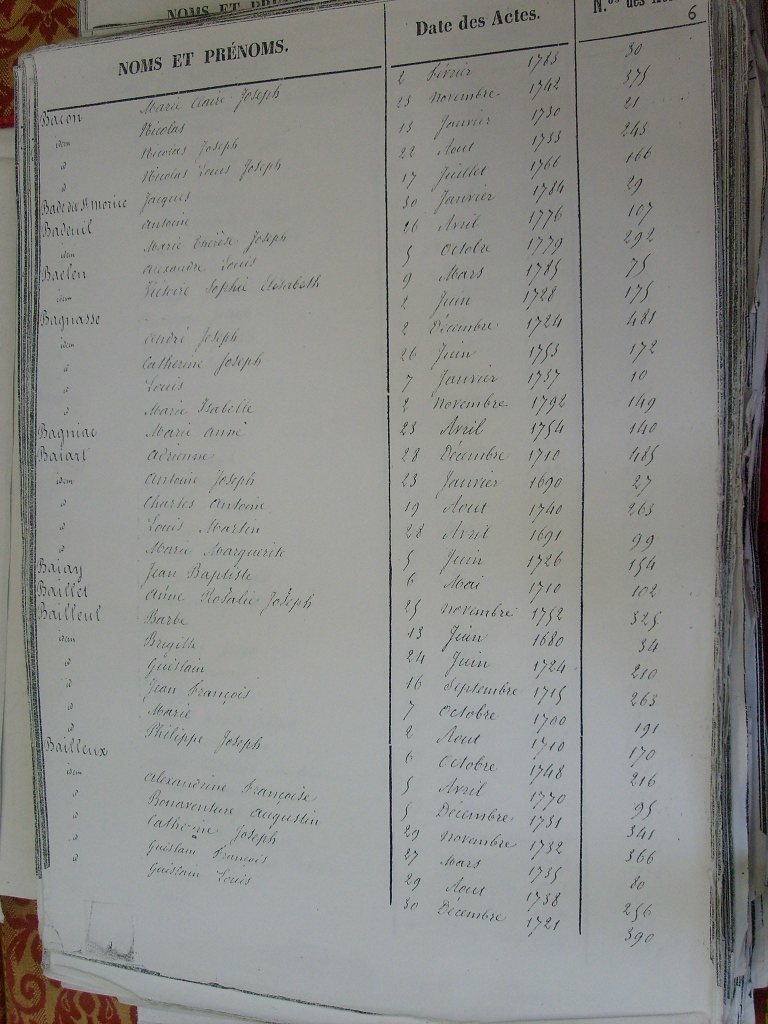 NOMS ET PRÉNOMS. Date des Actes. N.os des
6
Bacon Marie Claire Joseph 2 Février 1783 30
idem Nicolas 23 Novembre 1742 375
d Nicolas Joseph 13 Janvier 1730 21
d Nicolas Louis Joseph 22 Aout 1733 243
Bade du St Morice Jacques 17 Juillet 1766 166
Badeuil Antoine 30 Janvier 1784 29
idem Marie Thérèse Joseph 26 Avril 1776 107
Baelen Alexandre Louis 5 Octobre 1779 292
idem Victoire Sophie Elisabeth 9 Mars 1785 75
Bagnasse 2 Juin 1728 175
idem André Joseph 2 Décembre 1724 481
d Catherine Joseph 26 Juin 1753 172
d Louis 7 Janvier 1737 10
d Marie Isabelle 2 Novembre 1792 149
Bagniac Marie Anne 23 Avril 1754 140
Baiart Adrienne 28 Décembre 1710 485
idem Antoine Joseph 23 Janvier 1690 27
d Charles Antoine 19 Aout 1740 263
d Louis Martin 28 Avril 1691 99
d Marie Marguerite 5 Juin 1726 154
Baiay Jean Baptiste 6 Mai 1710 102
Baillet Anne Rosalie Joseph 25 Novembre 1752 325
Bailleul Barbe 13 Juin 1680 34
idem Brigitte 24 Juin 1724 210
d Guislain 16 Septembre 1715 263
d Jean François 7 Octobre 1700 191
d Marie 2 Aout 1710 170
d Philippe Joseph 6 Octobre 1748 216
Bailleux 5 Avril 1770 95
idem Alexandrine Françoise 5 Décembre 1731 341
d Bonaventure Augustin 29 Novembre 1732 366
d Catherine Joseph 27 Mars 1735 80
d Guislain François 29 Aout 1738 256
d Guislain Louis 30 Décembre 1721 390